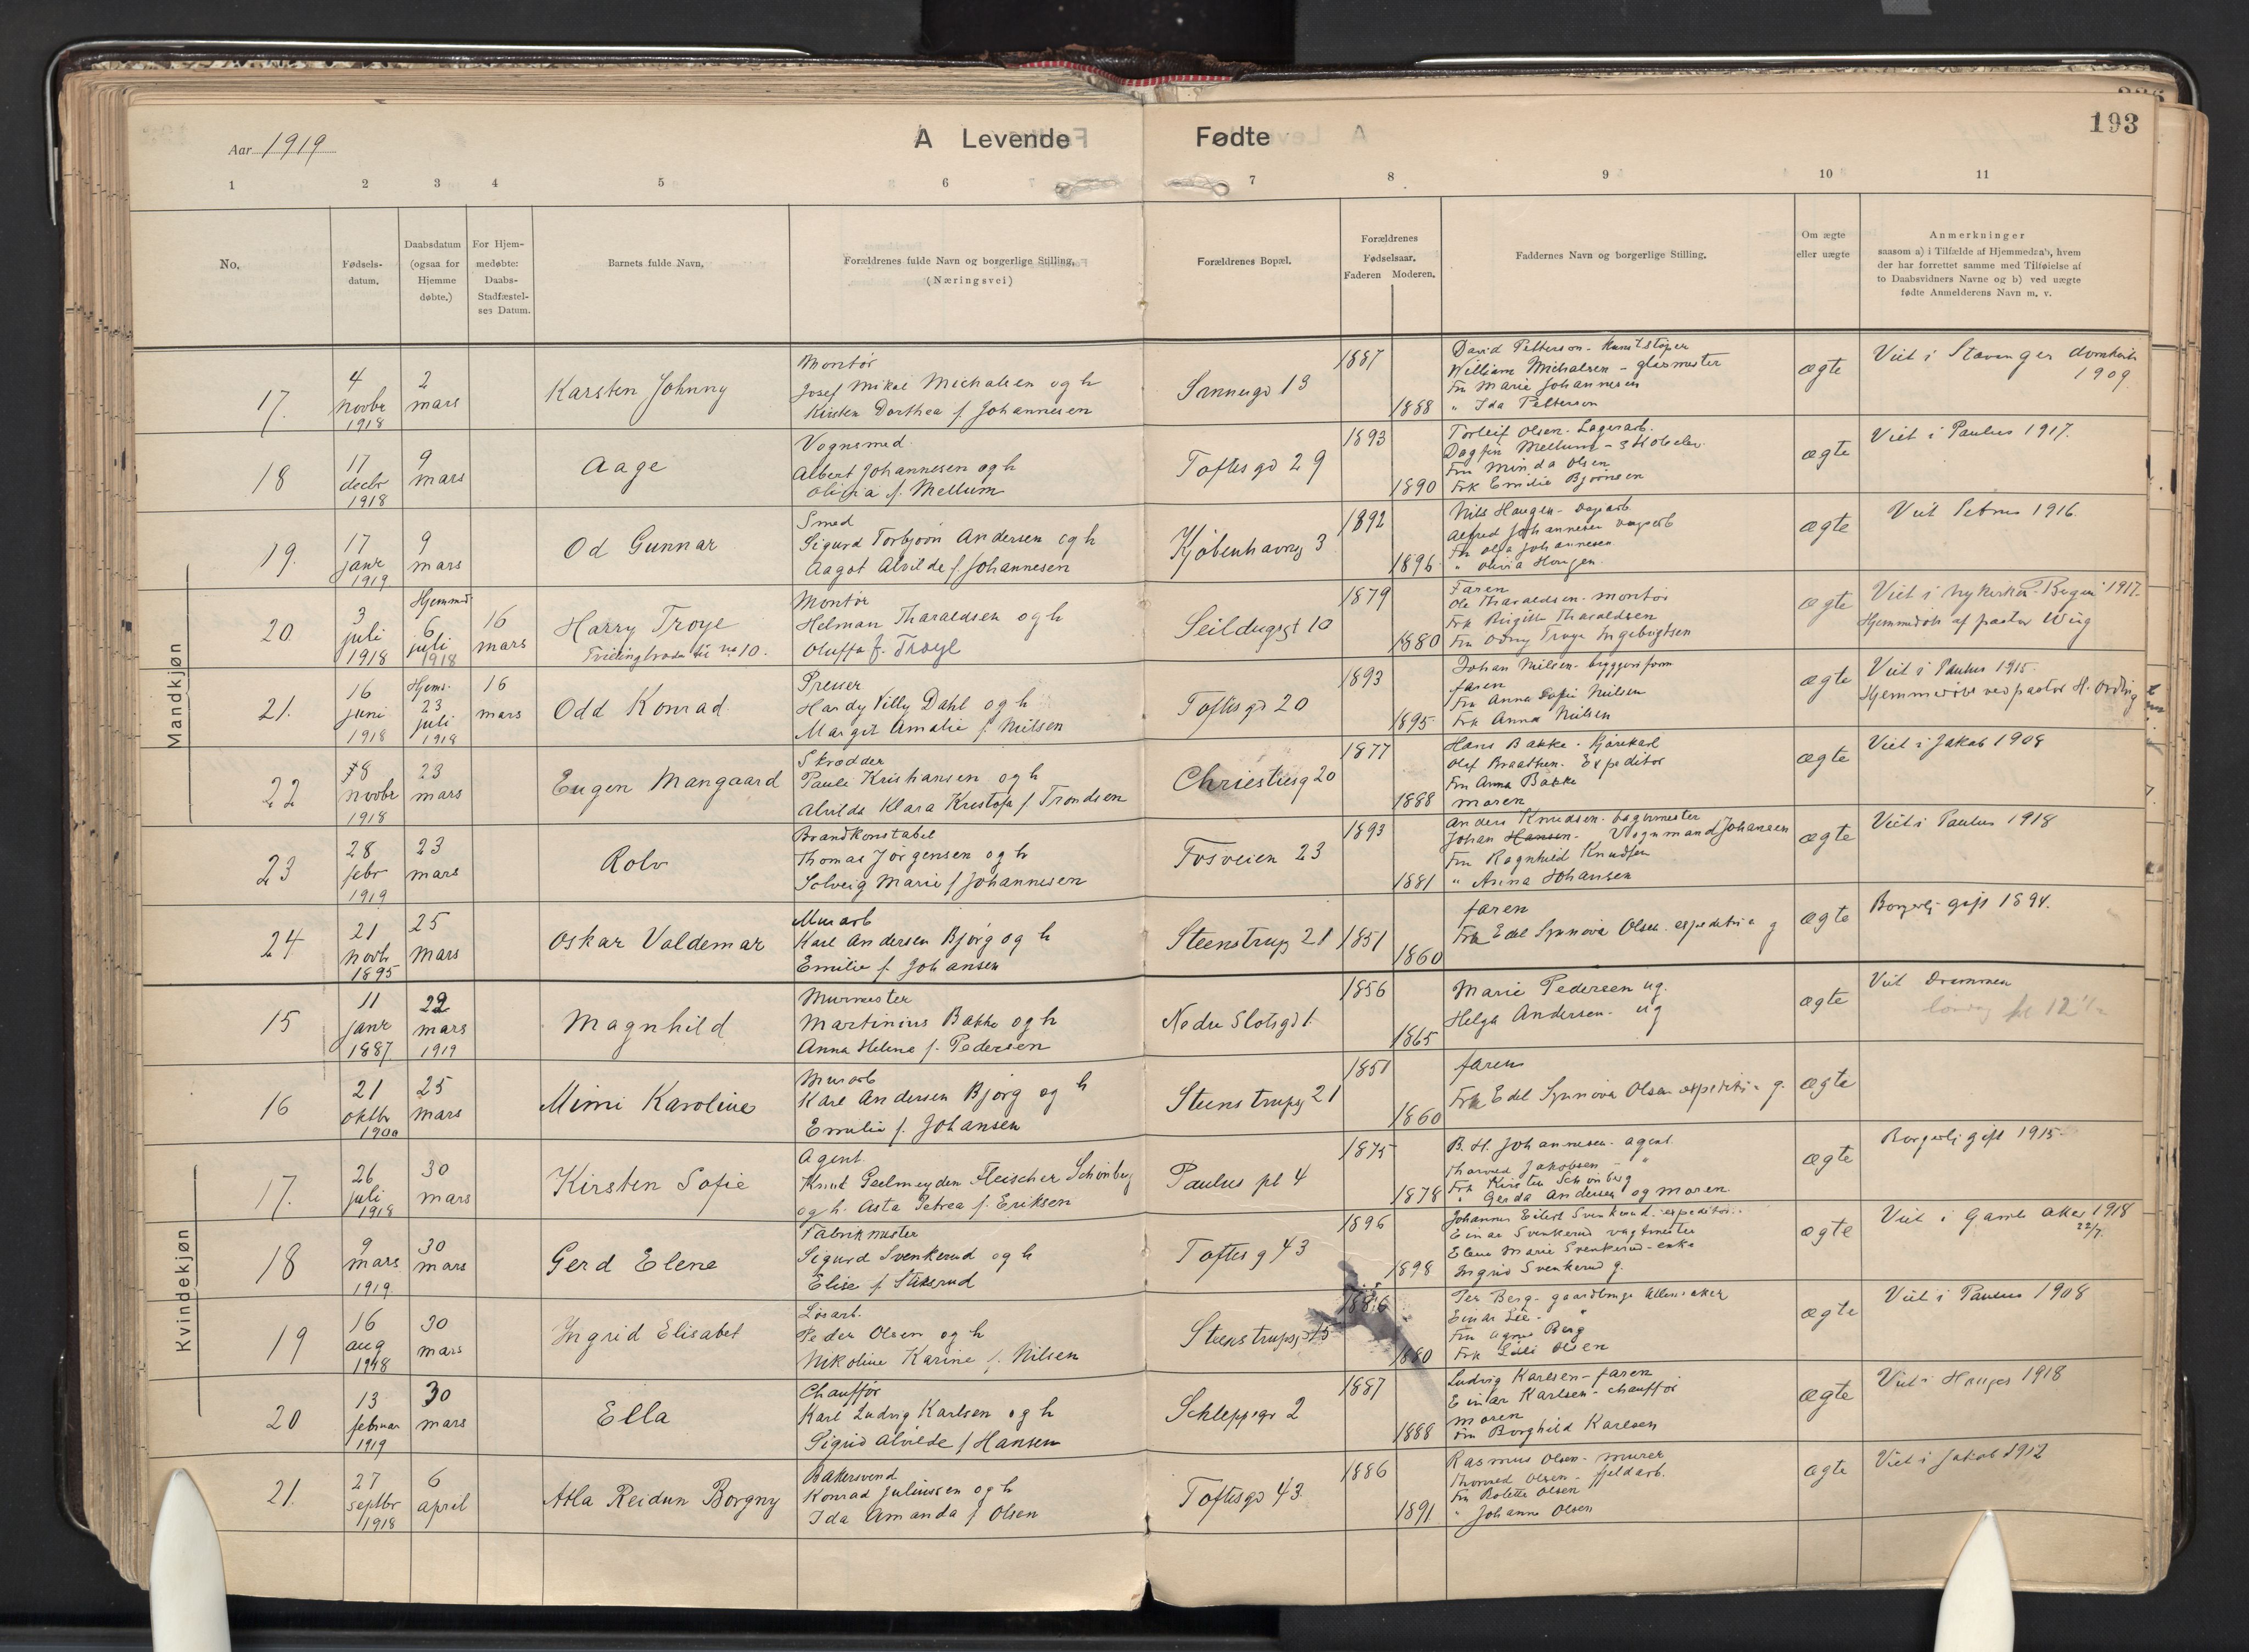 193
Aar 1919
A Levende Fødte
1 2 3 4 5 6 7 8 9 10 11
No.
Fødsels-
datum.
Daabsdatum
(ogsaa for
Hjemme
døbte.)
For Hjem-
medøbte:
Daabs-
Stadfæstel-
ses Datum.
Barnets fulde Navn.
Forældrenes fulde Navn og borgerlige Stilling.
(Næringsvei)
Forældrenes Bopæl.
Forældrenes
Fødselsaar.
Faderen Moderen.
Faddernes Navn og borgerlige Stilling.
Om ægte
eller uægte
Anmerkninger
saasom a) i Tilfælde af Hjemmedaab, hvem
der har forrettet samme med Tilføielse af
to Daabsvidners Navne og b) ved uægte
fødte Anmelderens Navn m. v.
Mandkjøn
17.
4
novbr
1918
2
mars
Karsten Johnny
Montør
Josef Mikal Michalsen og h
Kirsten Dorthea f. Johannesen
Sannergd 13
1887
1888
David Petterson - Kunststøper
William Michalsen - glasmester
Fru Marie Johannesen
" Ida Petterson
ægte
Viet i Stavanger domkirke
1909
18
17
decbr
1918
9
mars
Aage
Vognsmed
Albert Johannesen og h
Olivia f. Mellum
Toftesgd 29
1893
1890
Torleif Olsen - Lagerarb.
Dagfin Mellum
Fru Minda Olsen
Frk Emilie Bjørnsen
ægte
Viet i Paulus 1917.
19.
17
janr
1919
9
mars
Od Gunnar
Smed
Sigurd Torbjørn Andersen og h
Aagot Alvilde f Johannesen
Kjøbenhavng 3
1892
1896
Nils Haugen - Dagarb
Alfred Johannesen dagarb
Fru Olga Johannesen
" Olivia Haugen
ægte
Viet Petrus 1916.
20.
3
juli
1918
Hjemmd
6
juli
1918
16
mars
Harry Troye
Tvillingbroder til no 10.
Montør
Helman Tharaldsen og h
Oluffa f. Troye
Seildugsgt 10
1879
1880
Faren
Ole Tharaldsen - montør
Frk Birgitte Tharaldsen
Fru Odny Troye Ingebrigtsen
ægte
Viet i Nykirken - Bergen 1917.
Hjemmedøbt af pastor Wiig
21.
16
juni
1918
Hjems.
23
juli
1918
16
mars
Odd Konrad
Presser
Hardy Villy Dahl og h
Margit Amalie f. Nilsen
Toftesgd 20
1893
1895
Johan Nilsen - byggersform
faren
Fru Anna Sofie Nilsen
Frk Anna Nilsen
ægte
Viet i Paulus 1915.
Hjemmedøbt ved pastor H. Ording
22
18
novbr
1918
23
mars
Eugen Mangaard
Skrædder
Pauli Kristiansen og h
Alvilda Klara Kristofa f Trondsen
Christiesg 20
1877
1888
Hans Bakke - Kjørekarl
Olaf Braathen - Expeditør
Fru Anna Bakke
moren
ægte
Viet i Jakob 1908
23
28
febr
1919
23
mars
Rolv
Brandkonstabel
Thomas Jørgensen og h
Solveig Marie f Johannesen
Fosveien 23
1893
1881
Anders Knudsen - bagermester
Johan Hansen - Vognmand Johansen
Fru Ragnhild Knudsen
" Anna Johansen
ægte
Viet i Paulus 1918
24
21
novb
1895
25
mars
Oskar Valdemar
Murarb
Karl Andersen Bjørg og h
Emilie f. Johansen
Steenstrup 21
1851
1860
faren
Frk Edel Synnøve Olsen
ægte
Borgerlig gift 1894.
Kvindekjøn
15
11
janr
1887
22
mars
1919
Magnhild
Murmester
Martinius Bakke og h
Anna Helene f. Pedersen
Nedre Slotsgd 1.
1856
1865
Marie Pedersen ug.
Helga Andersen - ug
ægte
Viet Drammen
16
21
oktbr
1900
25
mars
Mimi Karoline
Murarb
Karl Andersen Bjørg og h
Emilie f. Johansen
Steenstrupsg 21
1851
1860
faren
Frk Edel Synnøve Olsen
ægte
17.
26
juli
1918
30
mars
Kirsten Sofie
Agent.
Knut Geelmeyden Fleischer Schønberg
og h. Asta Petrea f. Eriksen
Paulus pl 4
1875
1878
B. H. Johannesen - agent
Thorvald Jakobsen - "
Frk Kirsten Schønberg
" Gerda Andersen og moren
ægte
Borgerlig gift 1915.
18
9
mars
1919
30
mars
Gerd Elene
Fabrikmester
Sigurd Svenkerud og h
Elise f. Stiksrud
Toftesg 43
1896
1898
Johannes Eilert Svenkerud - expeditør.
Einar Svenkerud vagtmester
Elene Marie Svenkerud - enke
Ingrid Svenkerud g.
ægte
Viet i Gamle Aker 1918
22/7.
19
16
aug
1918
30
mars
Ingrid Elisabet
Løsarb.
Peder Olsen og h
Nikoline Karine f. Nilsen
Steenstrupsg 15
1886
1880
Per Berg - gaardbruger Ullensaker
Einar Lie - "
Fru Agnes Berg
Frk Lilli Olsen
ægte
Viet i Paulus 1908
20
13
februar
1919
30
mars
Ella
Chauffør
Karl Ludvig Karlsen og h
Sigrid Alvilde f Hansen
Schleppegr 2
1887
1888
Ludvig Karlsen - faren
Einar Karlsen - chauffør
moren
Fru Borghild Karlsen
ægte
Viet i Hauges 1918
21.
27
septbr
1918
6
april
Atla Reidun Borgny
Bakersvend
Konrad Juliussen og h
Ida Amanda f Olsen
Toftesgd 43
1886
1891
Rasmus Olsen - murer
Thorvald Olsen - fjeldarb.
Fru Bolette Olsen
" Johanne Olsen
ægte
Viet i Jakob 1912